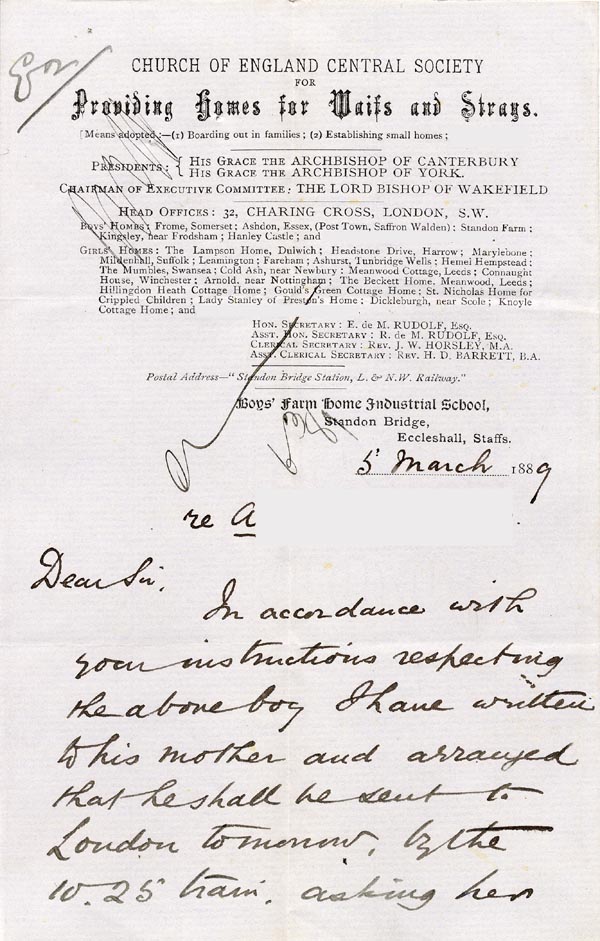 CHURCH OF ENGLAND CENTRAL SOCIETY
FOR
Providing Homes for Waifs and Strays.
[Means adopted:—(1) Boarding out in families; (2) Establishing small homes;
PRESIDENTS: { HIS GRACE THE ARCHBISHOP OF CANTERBURY
HIS GRACE THE ARCHBISHOP OF YORK.
CHAIRMAN OF EXECUTIVE COMMITTEE: THE LORD BISHOP OF WAKEFIELD
HEAD OFFICES: 32, CHARING CROSS, LONDON, S.W.
BOYS' HOMES: Frome, Somerset; Ashdon, Essex, (Post Town, Saffron Walden): Standon Farm;
Kingsley, near Frodsham; Hanley Castle; and
GIRLS' HOMES: The Lampson Home, Dulwich; Headstone Drive, Harrow; Marylebone;
Mildenhall, Suffolk; Leamington; Fareham; Ashurst, Tunbridge Wells; Hemel Hempstead;
The Mumbles, Swansea; Cold Ash, near Newbury; Meanwood Cottage, Leeds; Connaught
House, Winchester; Arnold, near Nottingham; The Beckett Home, Meanwood, Leeds;
Hillingdon Heath Cottage Home; Gould's Green Cottage Home; St. Nicholas Home for
Crippled Children; Lady Stanley of Preston's Home; Dickleburgh, near Scole; Knoyle
Cottage Home; and
HON. SECRETARY: E. de M. RUDOLF, ESQ.
ASST. HON. SECRETARY: R. de M. RUDOLF, ESQ.
CLERICAL SECRETARY: REV. J. W. HORSLEY, M.A.
ASST. CLERICAL SECRETARY: REV. H. D. BARRETT, B.A.
Postal Address—"Standon Bridge Station, L. & N.W. Railway."
Boys' Farm Home Industrial School,
Standon Bridge,
Eccleshall, Staffs.
5 March 1889
re A
Dear Sir,
In accordance with
your instructions respecting
the above boy I have written
to his mother and arranged
that he shall be sent to
London tomorrow, by the
10.25 train, asking her